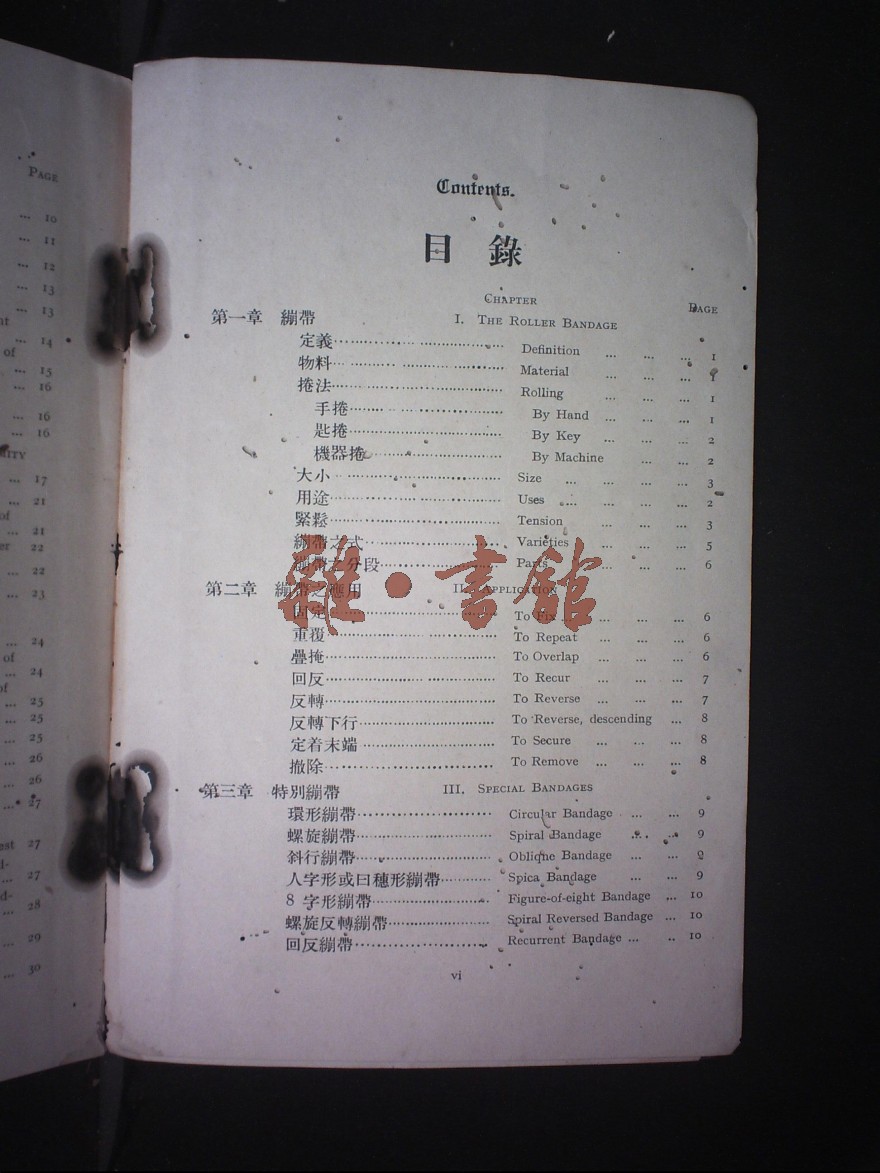 PAGE
... 10
... 11
... 12
... 13
... 13
nt
... 14
of
... 15
... 16
... 16
... 16
RITY
... 17
... 21
of
... 21
er 22
... 22
... 23
... 24
of
... 24
of
... 25
... 25
... 25
of
... 26
... 26
... 27
est 27
d-
... 27
d-
... 28
... 29
... 30
Contents.
目錄
CHAPTER PAGE
第一章 繃帶 I. THE ROLLER BANDAGE
定義 Definition ... ... ... 1
物料 Material ... ... ... 1
捲法 Rolling ... ... ... 1
手捲 By Hand ... ... ... 1
匙捲 By Key ... ... ... 2
機器捲 By Machine ... ... 2
大小 Size ... ... ... ... 3
用途 Uses ... ... ... ... 2
緊鬆 Tension ... ... ... 3
繃帶之式 Varieties ... ... ... 5
繃帶之分段 Parts ... ... ... 6
第二章 繃帶之應用 II. APPLICATION
固定 To Fix ... ... ... ... 6
重覆 To Repeat ... ... ... 6
疊掩 To Overlap ... ... ... 6
回反 To Recur ... ... ... 7
反轉 To Reverse ... ... ... 7
反轉下行 To Reverse, descending ... 8
定着末端 To Secure ... ... ... 8
撤除 To Remove ... ... ... 8
第三章 特別繃帶 III. SPECIAL BANDAGES
環形繃帶 Circular Bandage ... ... 9
螺旋繃帶 Spiral Bandage ... ... 9
斜行繃帶 Oblique Bandage ... ... 9
人字形或曰穗形繃帶 Spica Bandage ... ... 9
8字形繃帶 Figure-of-eight Bandage ... 10
螺旋反轉繃帶 Spiral Reversed Bandage ... 10
回反繃帶 Recurrent Bandage ... .. 10
vi
雜·書館